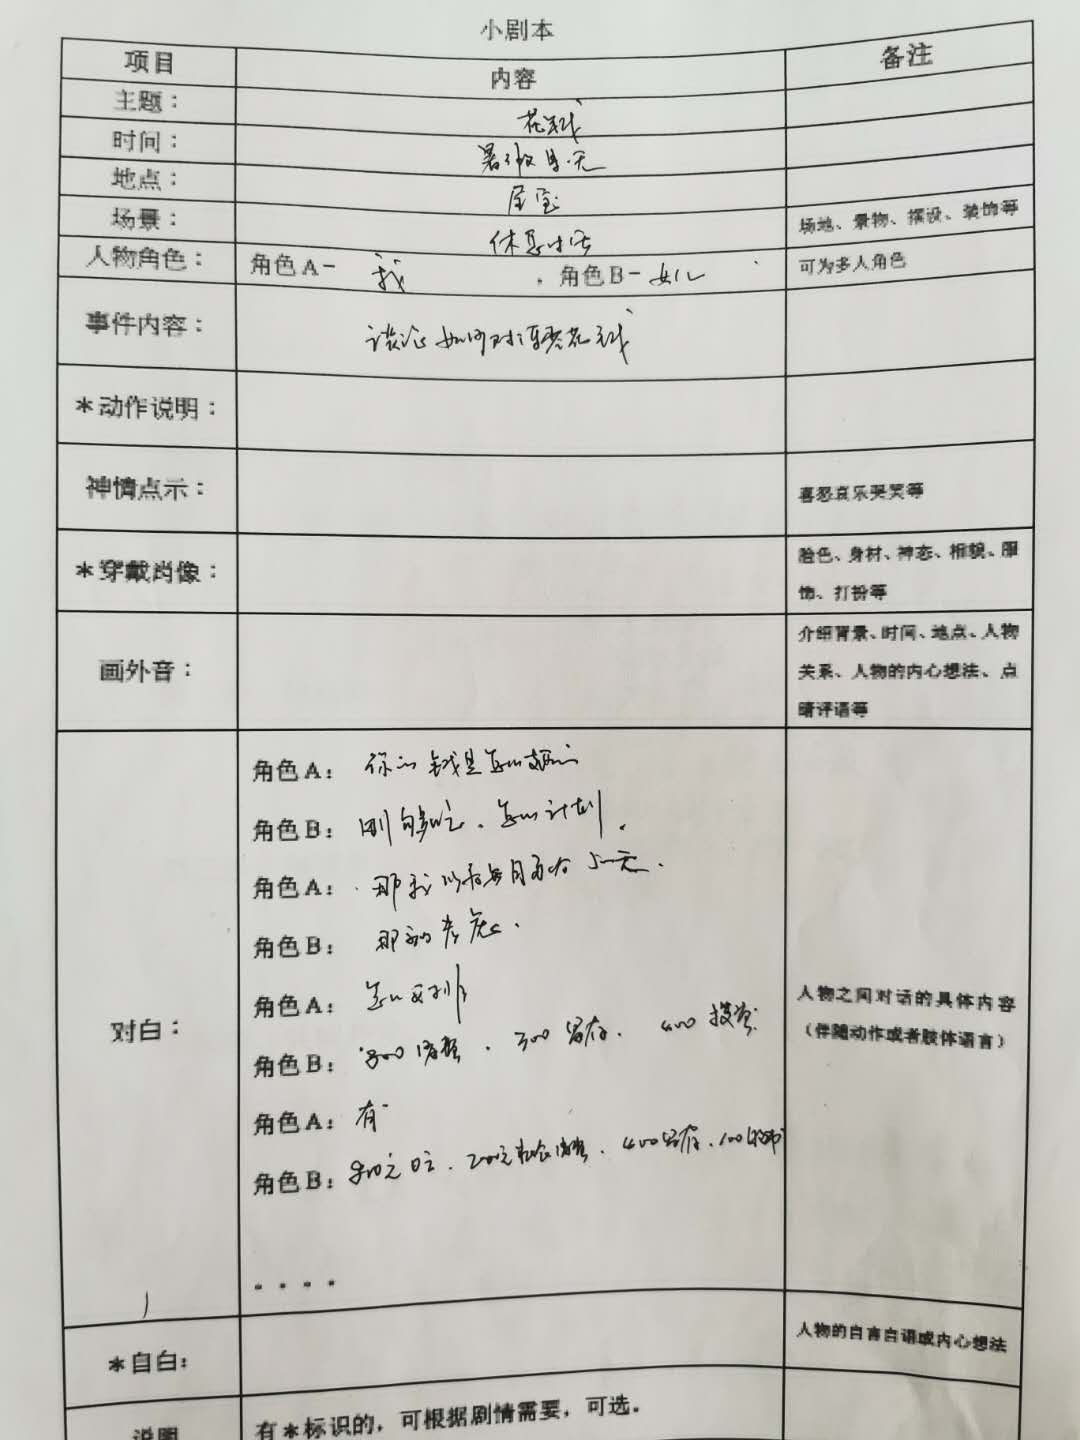 小剧本
项目 内容 备注
主题： 花钱
时间： 暑假某天
地点： 居室
场景： 休息时去 场地、景物、摆设、装饰等
人物角色： 角色A- 我 ，角色B- 女儿 可为多人角色
事件内容： 谈论如何对待花钱
*动作说明：
神情点示： 喜怒哀乐哭笑等
*穿戴肖像： 脸色、身材、神态、相貌、服
饰、打扮等
画外音： 介绍背景、时间、地点、人物
关系、人物的内心想法、点
睛评语等
对白：
角色A： 你的钱是怎么
角色B： 刚够吃、怎么计划．
角色A： 那我以后每月
角色B： 那
角色A： 怎么
角色B： 800 消费、300 留存、400 投资
角色A： 有
角色B： 消费、400留存、100
. . . .
人物之间对话的具体内容
（伴随动作或者肢体语言）
*自白： 人物的自言自语或内心想法
说明 有*标识的，可根据剧情需要，可选。